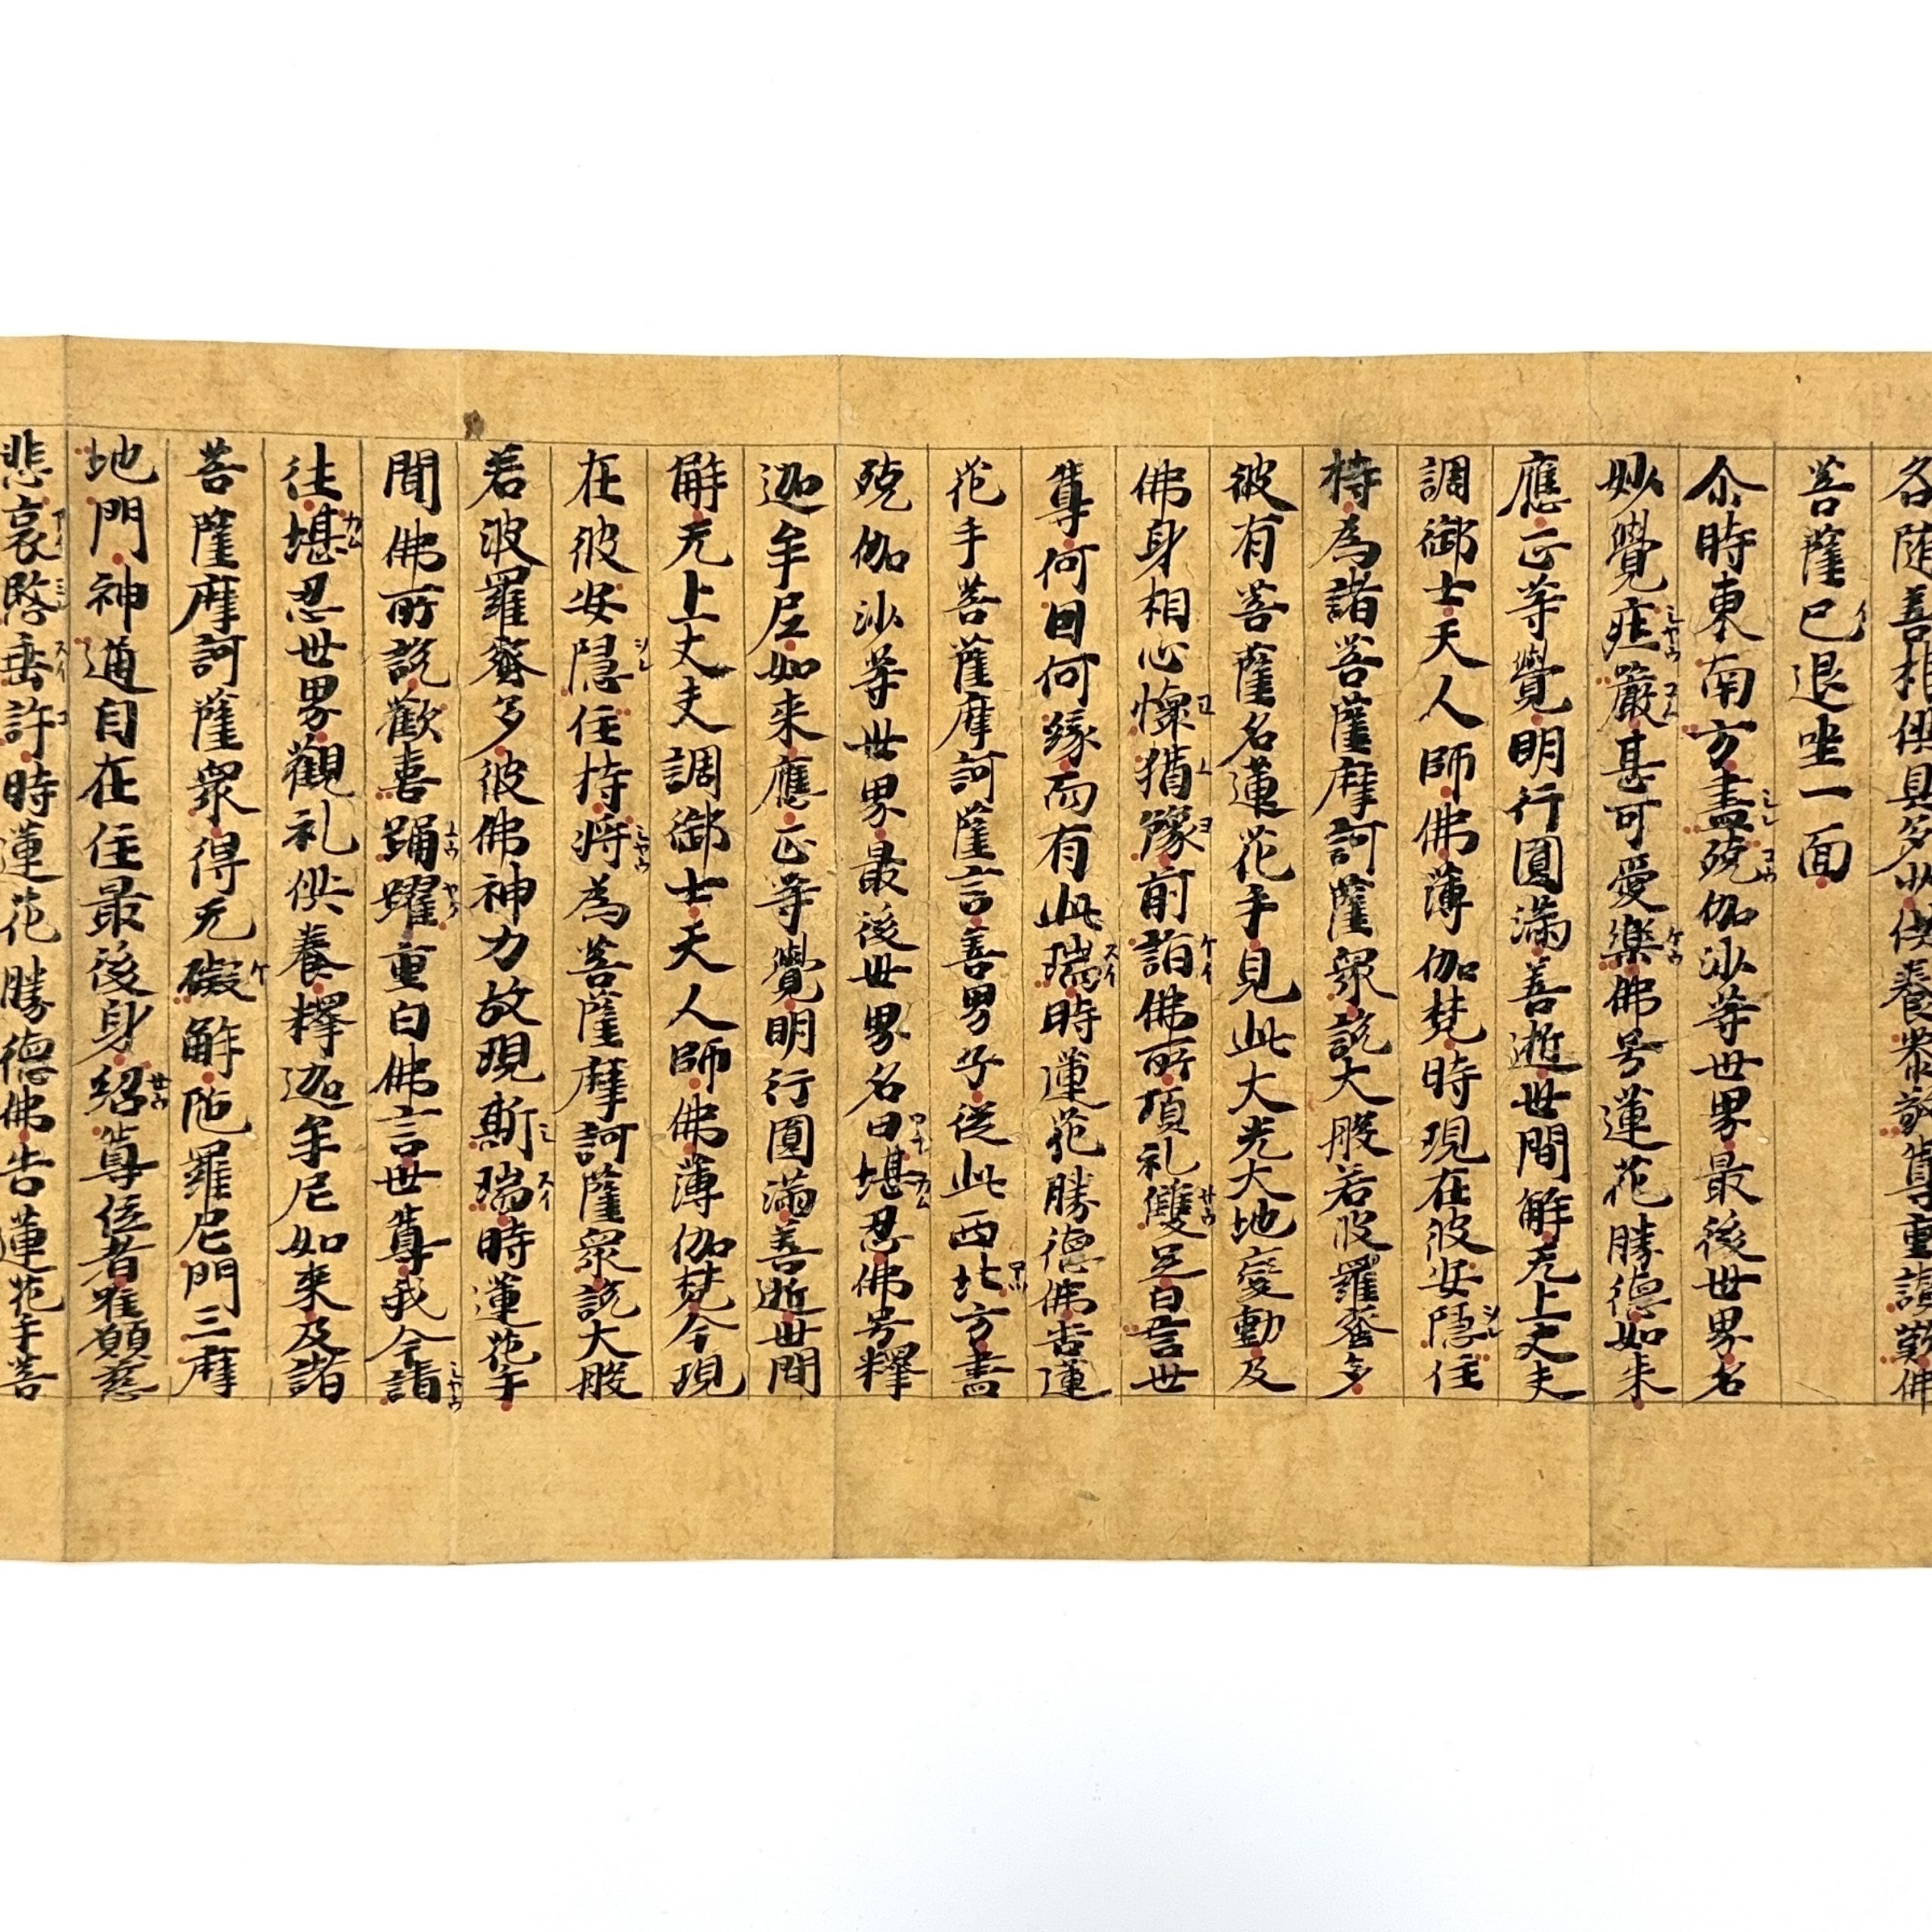 各随善根供具多少供養恭敬尊重讃歎佛
菩薩已退坐一面
尒時東南方盡殑伽沙等世界最後世界名
妙覺庄嚴甚可愛樂佛号蓮花勝德如来
應正等覺明行圓滿善逝世間解无上丈夫
調御士天人師佛薄伽梵時現在彼安隱住
持為諸菩薩摩訶薩衆說大般若波羅蜜多
彼有菩薩名蓮花手見此大光大地變動及
佛身相心懷猶豫前詣佛所頂礼雙足白言世
尊何因何緣而有此瑞時蓮花勝德佛告蓮
花手菩薩摩訶薩言善男子從此西北方盡
殑伽沙等世界最後世界名曰堪忍佛号釋
迦牟尼如来應正等覺明行圓滿善逝世間
解无上丈夫調御士天人師佛薄伽梵今現
在彼安隱住持将為菩薩摩訶薩衆說大般
若波羅蜜多彼佛神力故現斯瑞時蓮花手
聞佛所說歡喜踊躍重白佛言世尊我今請
往堪忍世界觀礼供養釋迦牟尼如来及諸
菩薩摩訶薩衆得无礙解陁羅尼門三摩
地門神通自在住最後身紹尊位者唯願慈
悲哀愍垂許時蓮花勝德佛告蓮花手善